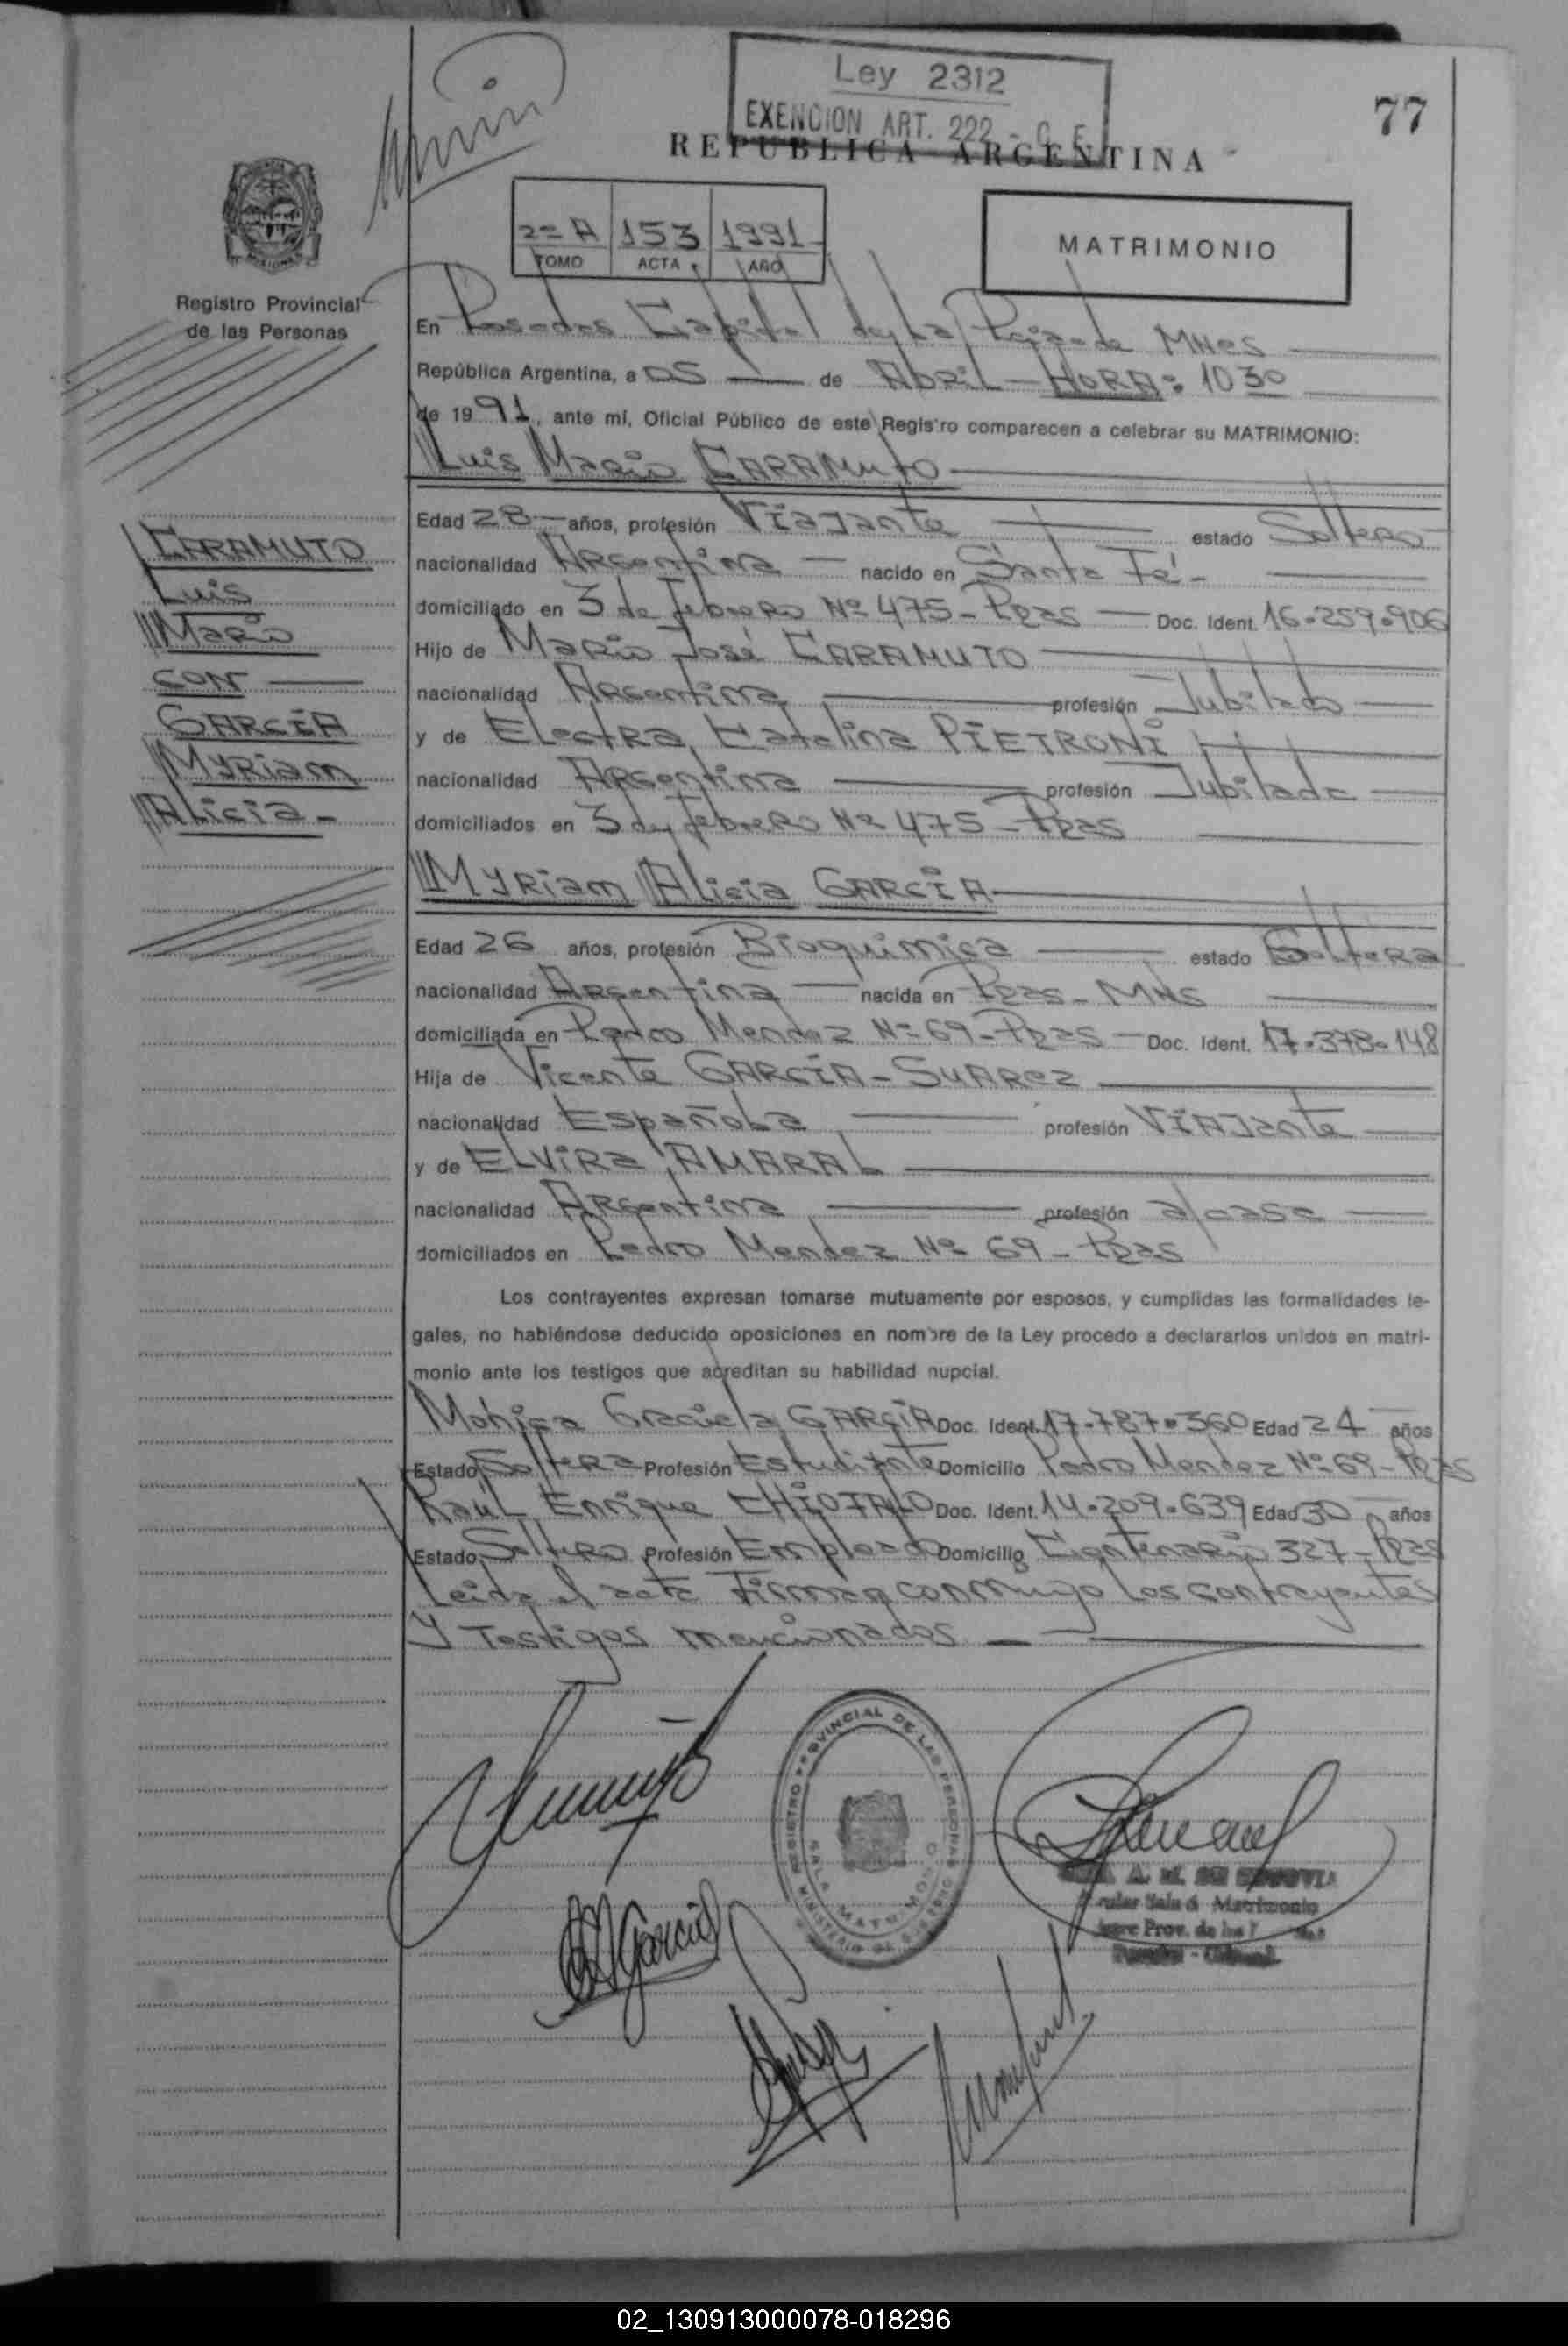 Ley 2312
EXENCION ART. 222 - C. F.
77
REPUBLICA ARGENTINA
2º A 153 1991
TOMO ACTA AÑO
MATRIMONIO
Registro Provincial
de las Personas
En Posadas Capital de La Pcia de MNes
República Argentina, a 05 de Abril - HORA: 10 30
de 1991, ante mi, Oficial Público de este Registro comparecen a celebrar su MATRIMONIO:
Luis Mario CARAMUTO
CARAMUTO
Luis
Mario
CON
GARCÍA
MYRiam
Alicia -
Edad 28 años, profesión Viajante estado Soltero
nacionalidad Argentina nacido en Santa Fé -
domiciliado en 3 de Febrero Nº 475 - Pdas Doc. Ident. 16.259.906
Hijo de Mario José CARAMUTO
nacionalidad Argentina profesión Jubilado
y de Electra Catalina PIETRONI
nacionalidad Argentina profesión Jubilada
domiciliados en 3 de Febrero Nº 475 - Pdas
MYRiam Alicia GARCÍA
Edad 26 años, profesión Bioquímica estado Soltera
nacionalidad Argentina nacida en Pdas - MNS
domiciliada en Pedro Mendez Nº 69 - Pdas Doc. Ident. 17.378.148
Hija de Vicente GARCÍA - SUAREZ
nacionalidad Española profesión VIAJante
y de ELVIRA AMARAL
nacionalidad Argentina profesión a/casa
domiciliados en Pedro Mendez Nº 69 - Pdas
Los contrayentes expresan tomarse mutuamente por esposos, y cumplidas las formalidades le-
gales, no habiéndose deducido oposiciones en nombre de la Ley procedo a declararlos unidos en matri-
monio ante los testigos que acreditan su habilidad nupcial.
Mónica Graciela GARCÍA Doc. Ident. 17.787.360 Edad 24 años
Estado Soltera Profesión Estudiante Domicilio Pedro Mendez Nº 69 - Pdas
Raúl Enrique CHIOFALO Doc. Ident. 14.209.639 Edad 30 años
Estado Soltero Profesión Empleado Domicilio Centenario 327 - Pdas
Leida el acta Firman conmigo Los contrayentes
Y Testigos mencionados
REGISTRO PROVINCIAL DE LAS PERSONAS
SALA MATRIMONIO
MINISTERIO DE GOBIERNO
A. M. DE SEGOVIA
Matrimonio
Prov. de las
02_130913000078-018296